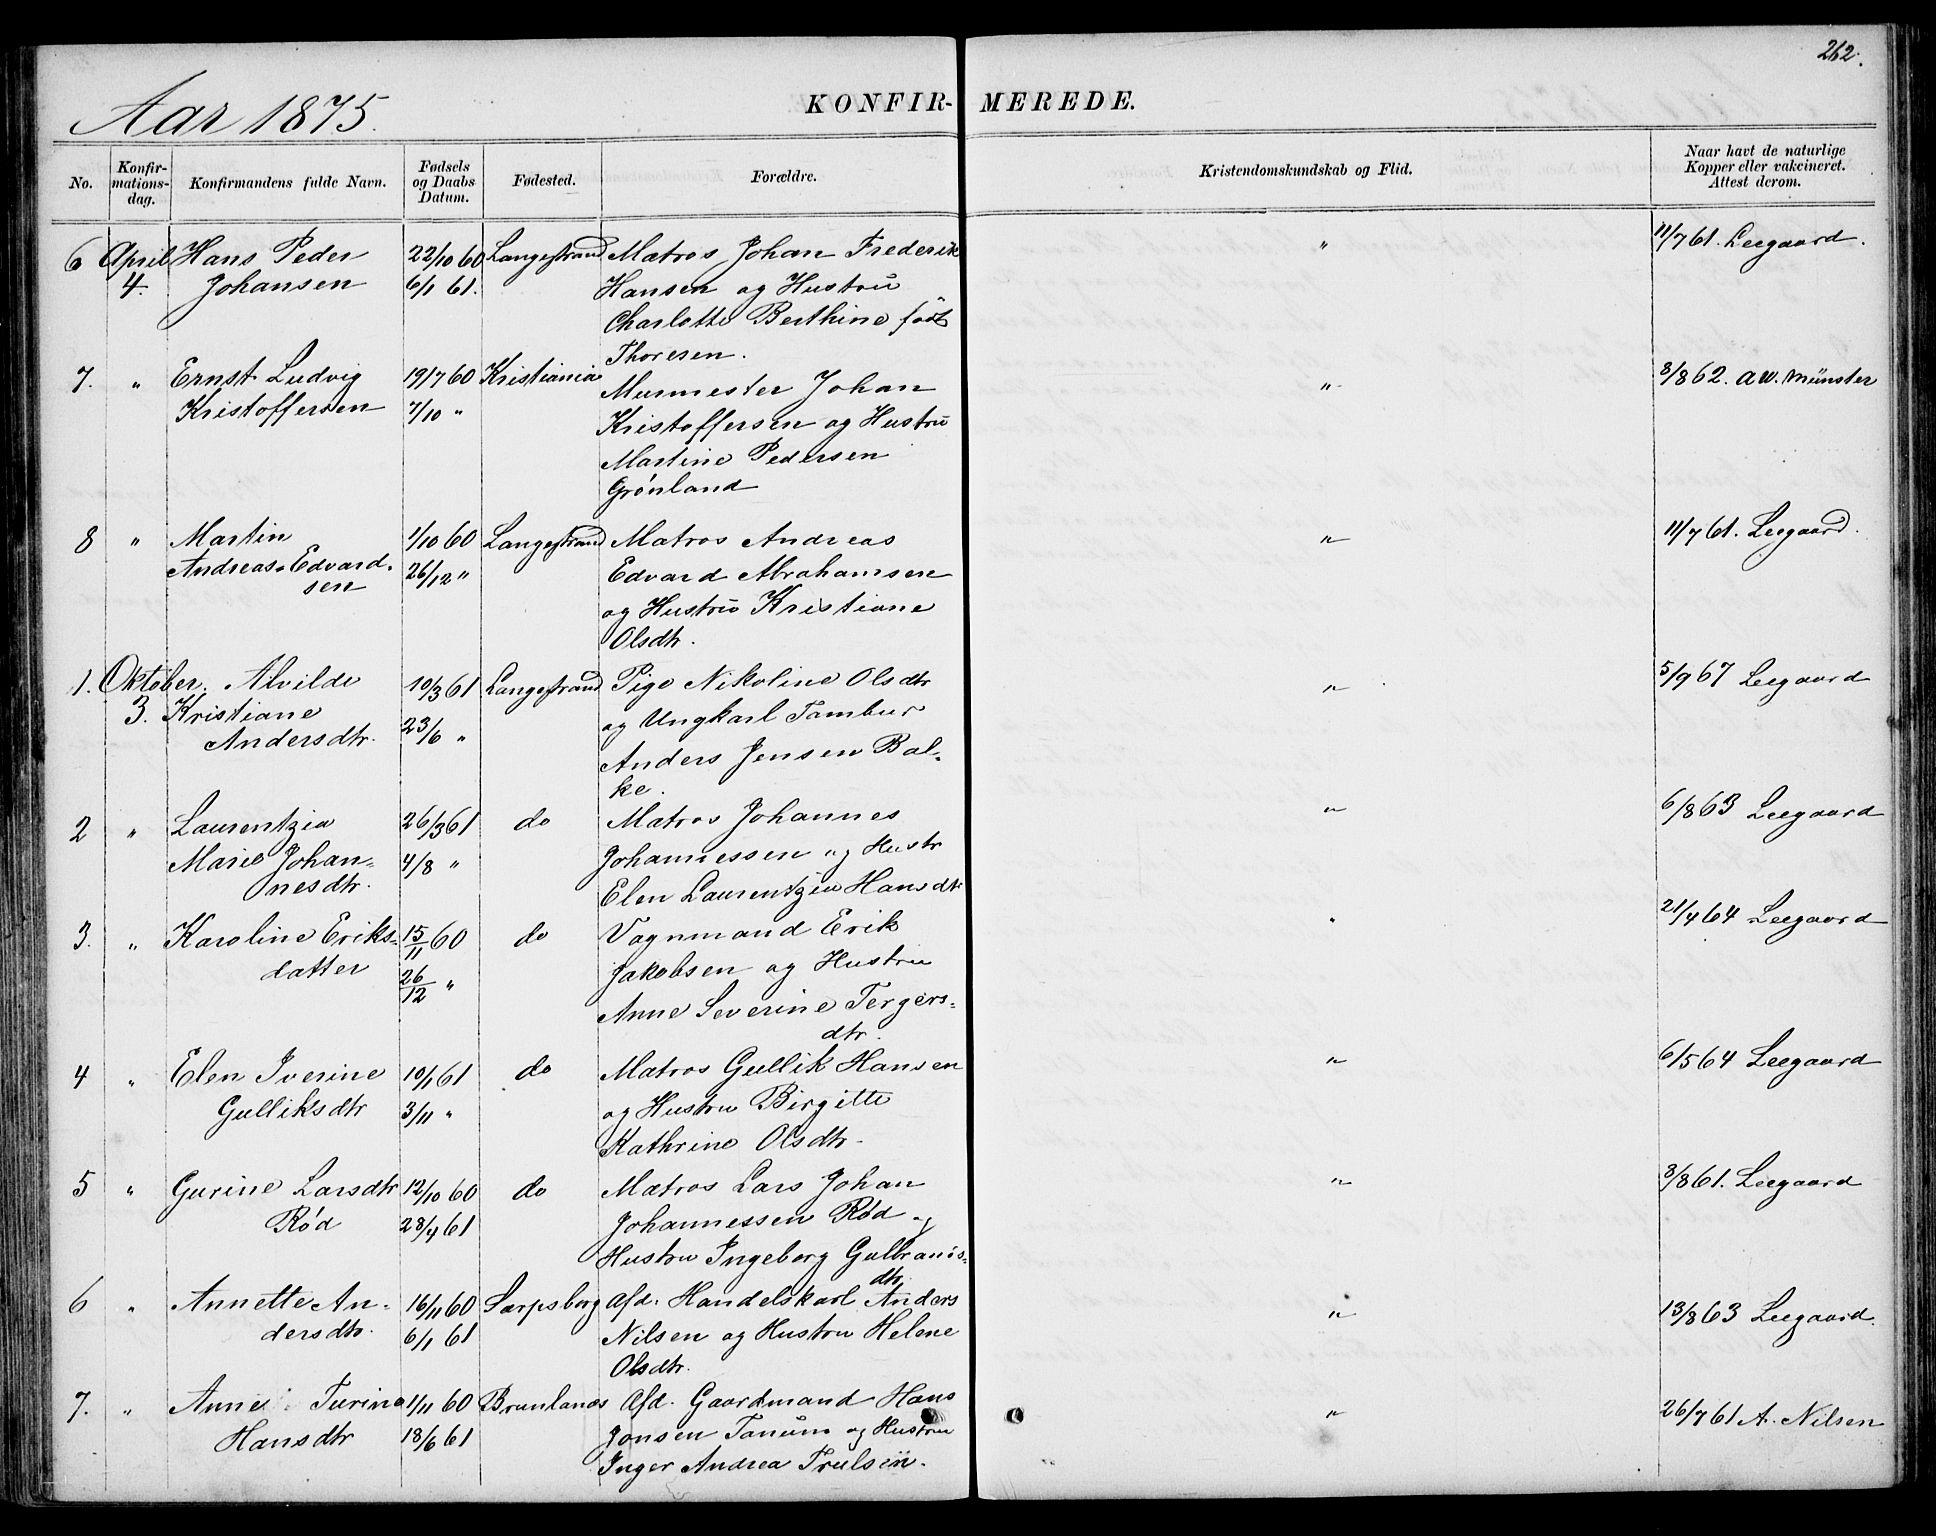 262.
Aar 1875.
KONFIR- MEREDE.
No.
Konfir-
mations-
dag.
Konfirmandens fulde Navn.
Fødsels
og Daabs
Datum.
Fødested.
Forældre.
Kristendomskundskab og Flid.
Naar havt de naturlige
Kopper eller vakcineret.
Attest derom.
6 April Hans Peder 22/10 60 Langestrand Matros Johan Frederik " 11/7 61. Leegaard.
4. Johansen 6/1 61. Hansen og Hustru
Charlotte Berthine født
Thoresen.
7. " Ernst Ludvig 19/7 60 Kristiania Murmester Johan " 8/8 62. AW. Münster
Kristoffersen 7/10 " Kristoffersen og Hustru
Martine Pedersen
Grønland
8 " Martin 1/10 60 Langestrand Matros Andreas " 11/7 61. Leegaard.
Andreas Edvard- 26/12 " Edvard Abrahamsen
sen og Hustru Kristiane
Olsdtr.
1. Oktober. Alvilde 10/3 61 Langestrand Pige Nikoline Olsdtr " 5/9 67 Leegaard
3. Kristiane 23/6 " og Ungkarl Tambur
Andersdtr. Anders Jensen Bal-
ke.
2 " Laurentzia 26/3 61 do Matros Johannes " 6/8 63 Leegaard
Marie Johan- 4/8 " Johannessen og Hustr
nesdtr. Elen Laurentzia Hansdtr
3. " Karoline Eriks- 15/11 60 do Vognmand Erik " 21/4 64 Leegaard
datter 26/12 " Jakobsen og Hustru
Anne Severine Tergers-
dtr.
4 " Elen Iverine 10/1 61 do Matros Gullik Hansen " 6/5 64 Leegaard
Gulliksdtr 3/11 " og Hustru Birgitte
Kathrine Olsdtr.
5 " Gurine Larsdtr 12/10 60 do Matros Lars Johan " 3/8 61. Leegaard
Rød 28/4 61 Johannessen Rød og
Hustru Ingeborg Gulbrands-
dtr.
6 " Annette An- 16/11 60 Sarpsborg Afd. Handelskarl Anders " 13/8 63 Leegaard.
dersdtr. 6/1 61 Nilsen og Hustru Helene
Olsdtr.
7. " Anne Turine 1/11 60 Brunlanæs Afd. Gaardmand Hans " 26/7 61 A. Nilsen
Hansdtr 18/6 61 Jonsen Tanum og Hustru
Inger Andrea Trulsen.